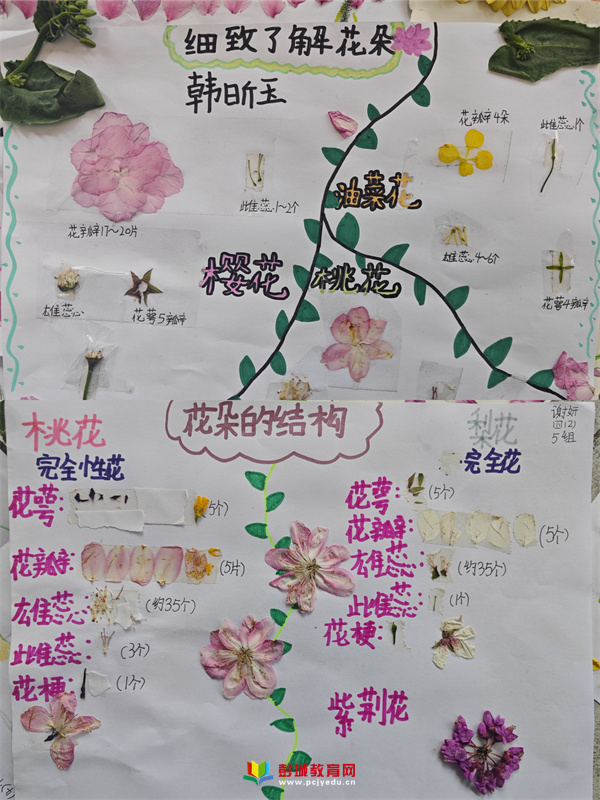 细致了解花朵
韩昕玉
花瓣4朵
雌蕊1个
雌蕊1~2个
油菜花
花瓣17~20片
雄蕊4~6个
樱花
桃花
雄蕊
花萼5瓣
花萼4瓣
花朵的结构
桃花
梨花
谢妍
四(2)
5组
完全性花
完全花
花萼:
(5个)
花萼:
(5个)
花瓣:
(5个)
花瓣:
(5片)
雄蕊:
(约35个)
雄蕊:
(约35个)
雌蕊:
(1个)
雌蕊:
(3个)
花梗:
花梗:
(1个)
紫荆花
彭城教育网
www.pcjyedu.cn